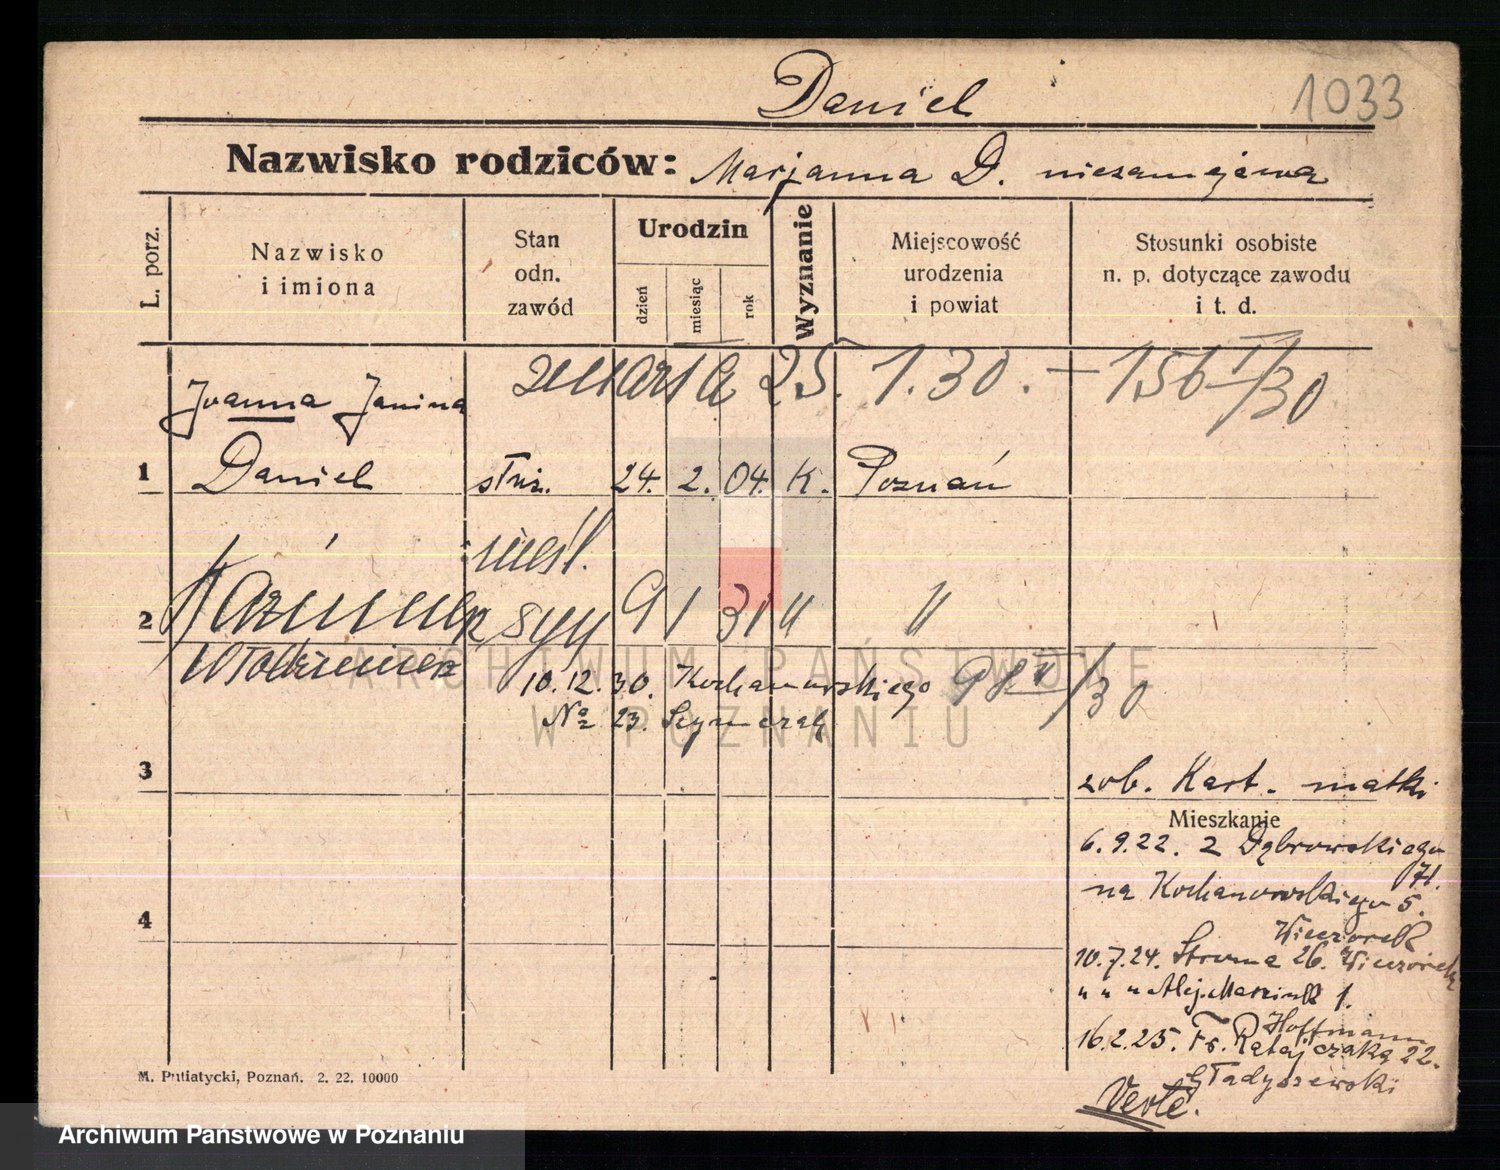 Daniel
1033
Nazwisko rodziców: Marjanna D. niezamężna
L. porz.
Nazwisko
i imiona
Stan
odn.
zawód
Urodzin
dzień
miesiąc
rok
Wyznanie
Miejscowość
urodzenia
i powiat
Stosunki osobiste
n. p. dotyczące zawodu
i t. d.
zmarła 25. 1. 30. — 156 II/30
Joanna Janina
1 Daniel służ. 24. 2. 04. K. Poznań
nieśl.
2 Kazimierz syn 9 1 31 " "
Włodzimierz
10.12.30. Kochanowskiego 98 V/30
No 23. Szymczak
3
zob. Kart. matki
Mieszkanie
6.9.22. z Dąbrowskiego
71.
na Kochanowskiego 5.
Wieczorek
4
10.7.24. Stroma 26. Wieczorek
" " " Alej. Marcink 1.
Hoffmann
16.2.25. Fr. Ratajczaka 22.
Gładyszewski
Verte.
M. Putiatycki, Poznań. 2. 22. 10000
ARCHIWUM PAŃSTWOWE
W POZNANIU
Archiwum Państwowe w Poznaniu